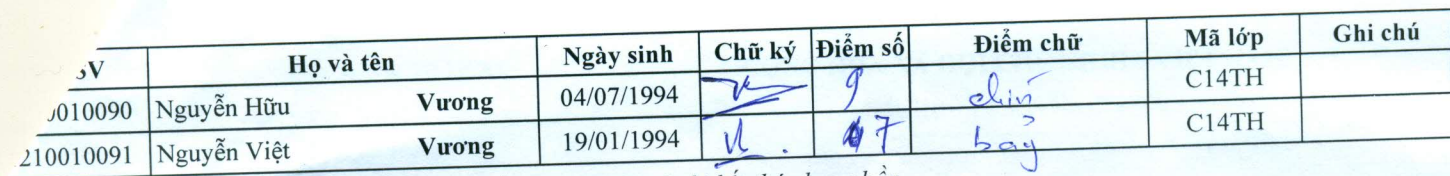 SV Họ và tên Ngày sinh Chữ ký Điểm số Điểm chữ Mã lớp Ghi chú
010090 Nguyễn Hữu Vương 04/07/1994 9 chín C14TH
210010091 Nguyễn Việt Vương 19/01/1994 7 bảy C14TH